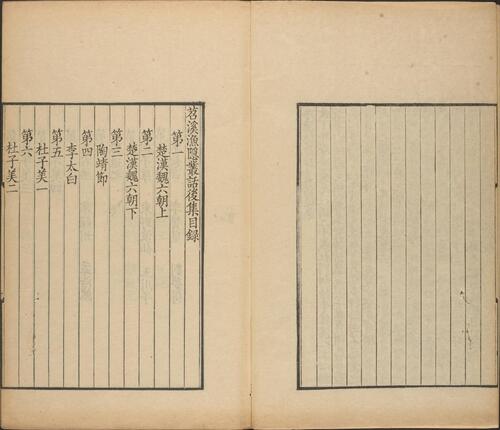 苕溪漁隱叢話後集目録
第一
楚漢魏六朝上
第二
楚漢魏六朝下
第三
陶靖節
第四
李太白
第五
杜子美一
第六
杜子美二